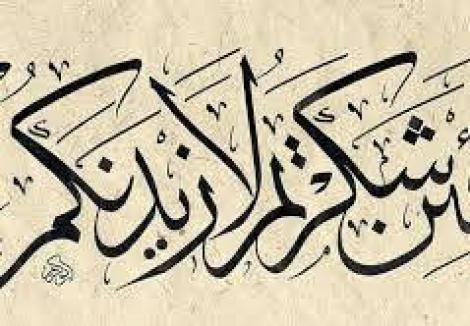 لئن شكرتم لأزيدنكم